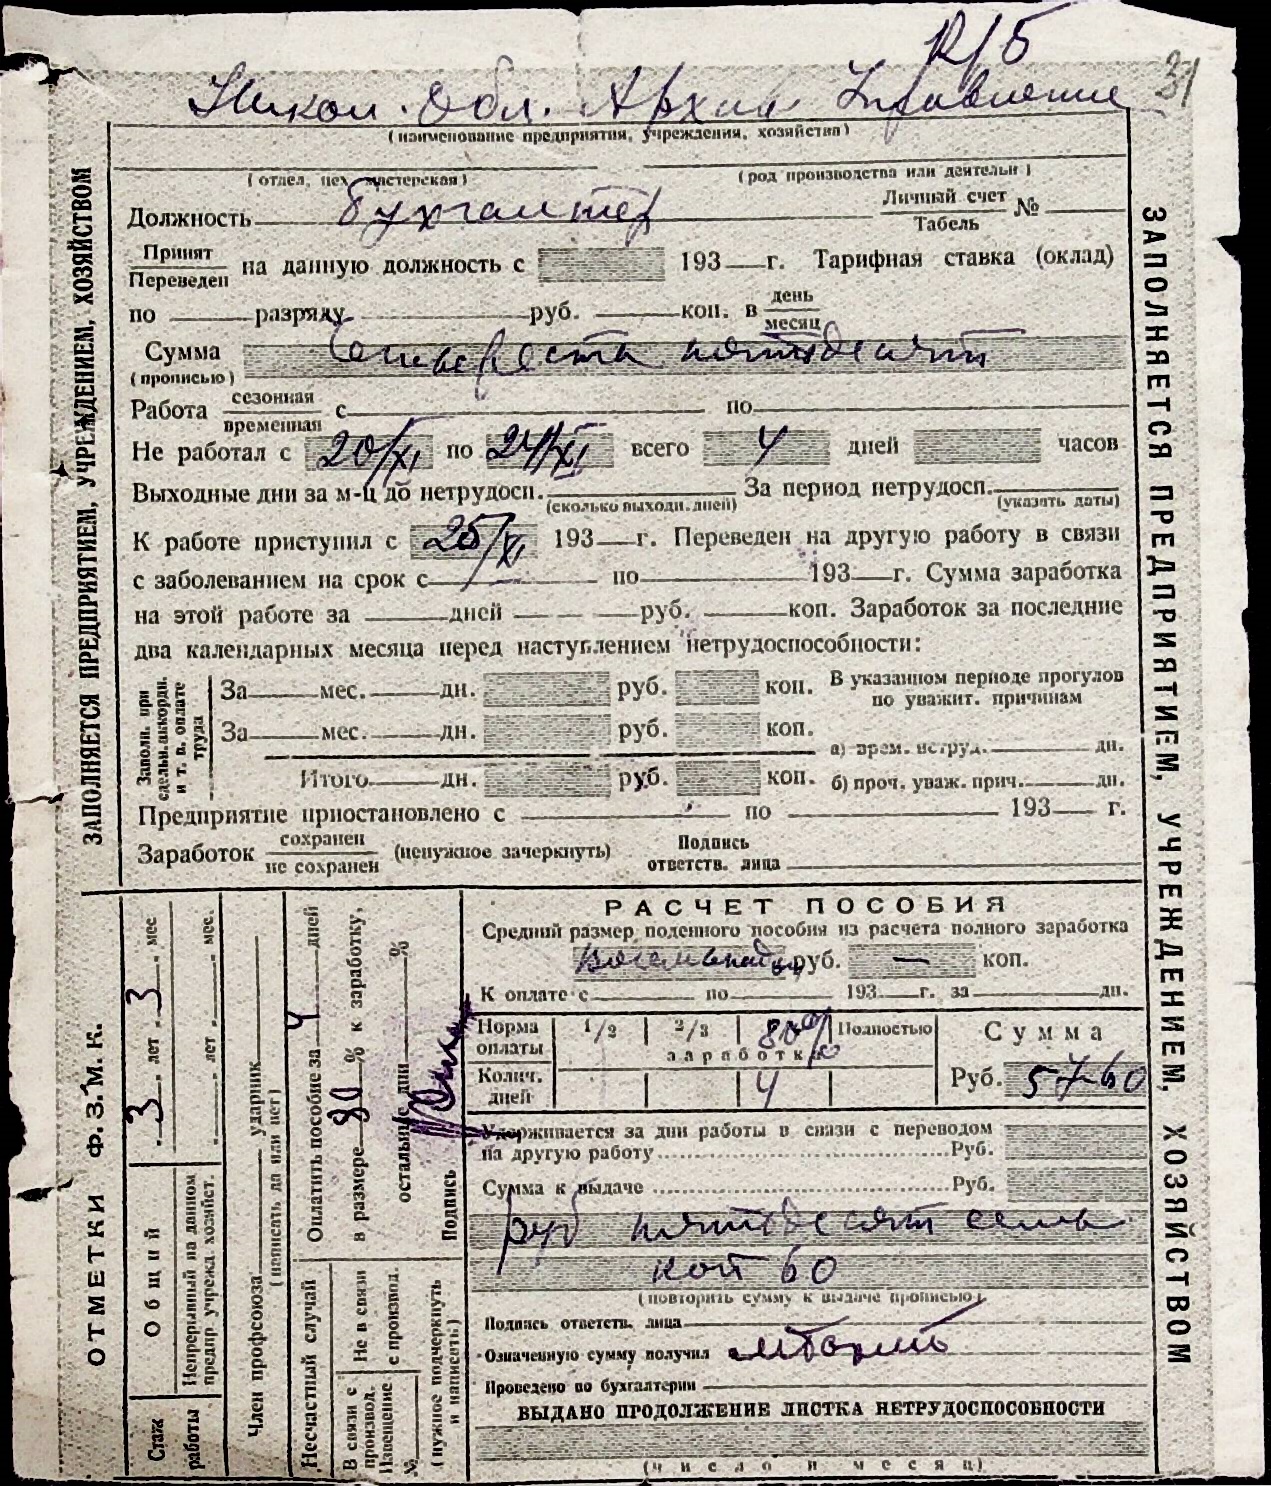 R/5
31
Никол. Обл. Архив Управление
(наименование предприятия, учреждения, хозяйства)
(отдел, цех мастерская) (род производства или деятельн)
Должность бухгалтер Личный счет / Табель №
Принят / Переведен на данную должность с 193 г. Тарифная ставка (оклад)
по разряду руб. коп. в день / месяц
Сумма (прописью) Четыреста пятьдесят
Работа сезонная / временная с по
Не работал с 20/XI по 24/XI всего 4 дней часов
Выходные дни за м-ц до нетрудосп. (сколько выходн. дней) За период нетрудосп. (указать даты)
К работе приступил с 25/XI 193 г. Переведен на другую работу в связи
с заболеванием на срок с по 193 г. Сумма заработка
на этой работе за дней руб. коп. Заработок за последние
два календарных месяца перед наступлением нетрудоспособности:
Заполн. при сдельн. аккордн. и т. п. оплате труда
За мес. дн. руб. коп. В указанном периоде прогулов
по уважит. причинам
За мес. дн. руб. коп.
а) врем. нетруд. дн.
Итого дн. руб. коп. б) проч. уваж. прич. дн.
Предприятие приостановлено с по 193 г.
Заработок сохранен / не сохранен (ненужное зачеркнуть) Подпись ответств. лица
ЗАПОЛНЯЕТСЯ ПРЕДПРИЯТИЕМ, УЧРЕЖДЕНИЕМ, ХОЗЯЙСТВОМ
ЗАПОЛНЯЕТСЯ ПРЕДПРИЯТИЕМ, УЧРЕЖДЕНИЕМ, ХОЗЯЙСТВОМ
ОТМЕТКИ Ф.З.М.К.
Стаж работы
Общий 3 лет 3 мес
Непрерывный на данном предпр. учрежд. хозяйст. лет мес.
Член профсоюза ударник
(написать да или нет)
Несчастный случай
Оплатить пособие за 4 дней
в размере 80 % к заработку,
остальные дни %
Подпись
В связи с производ. Извещение №
Не в связи с производ.
(нужное подчеркнуть и написать)
РАСЧЕТ ПОСОБИЯ
Средний размер поденного пособия из расчета полного заработка
Восемнадц руб. — коп.
К оплате с по 193 г. за дн.
Норма оплаты 1/2 2/3 80% Полностью Сумма
заработка
Колич. дней 4 Руб. 57-60
Удерживается за дни работы в связи с переводом
на другую работу Руб.
Сумма к выдаче Руб.
руб пятьдесят семь
коп 60
(повторить сумму к выдаче прописью)
Подпись ответств. лица
Означенную сумму получил
Проведено по бухгалтерии
ВЫДАНО ПРОДОЛЖЕНИЕ ЛИСТКА НЕТРУДОСПОСОБНОСТИ
(число и месяц)